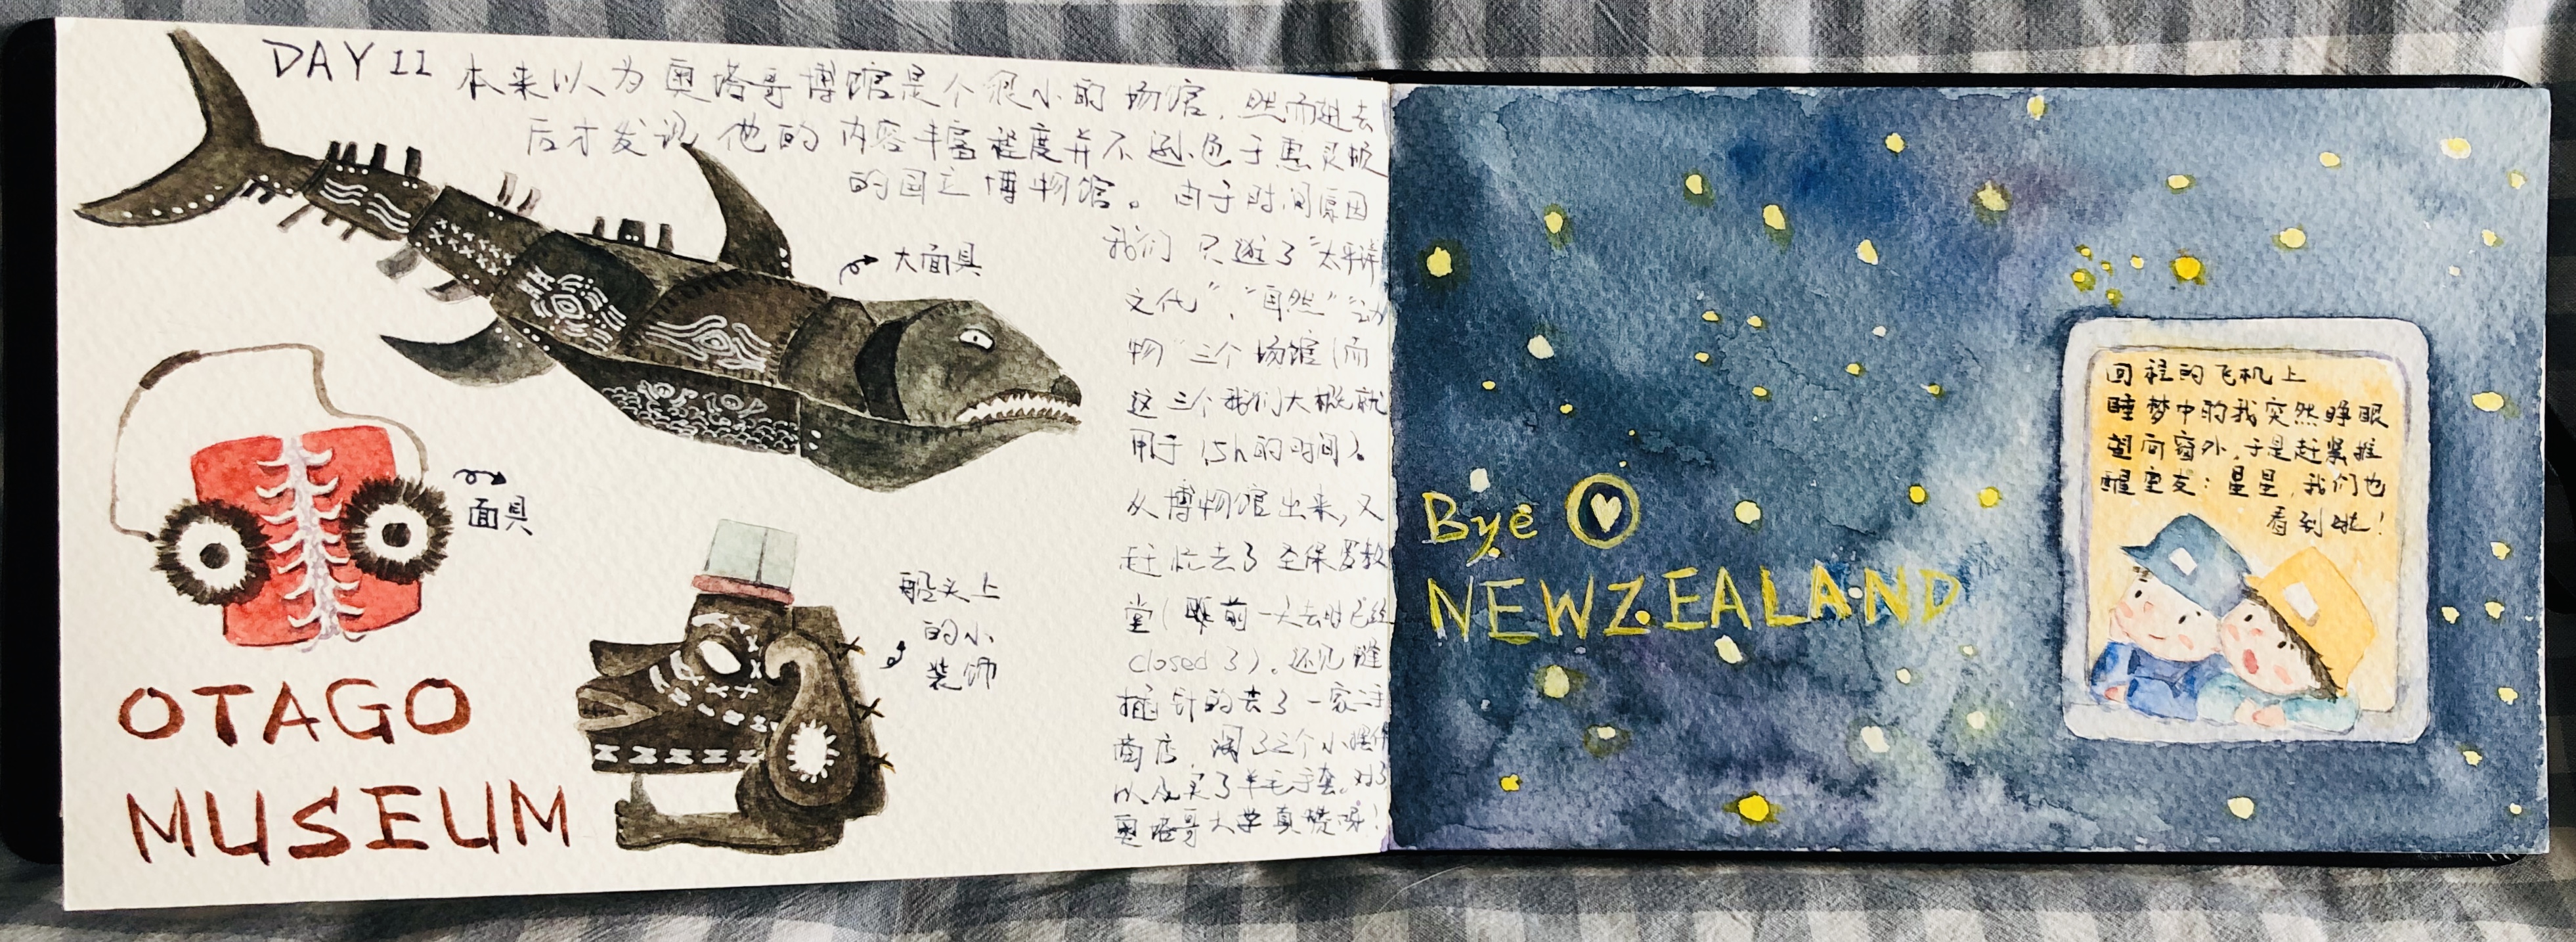 DAY 11 本来以为奥塔哥博馆是个很小的场馆，然而进去
后才发现他的内容丰富程度并不逊色于惠灵顿
的国立博物馆。由于时间原因
我们只逛了“太平洋
文化”，“自然”“动
物”三个场馆（而
这三个我们大概就
用于1.5h的时间）。
从博物馆出来，又
赶忙去了圣保罗教
堂（前一天去时已经
closed了）。还见缝
插针的去了一家二手
商店，淘了三个小摆件
以及买了羊毛手套。对了
奥塔哥大学真赞呀！
大面具
面具
船头上
的小
装饰
OTAGO
MUSEUM
Bye
NEWZEALAND
回程的飞机上
睡梦中的我突然睁眼
望向窗外，于是赶紧推
醒室友：星星，我们也
看到啦！